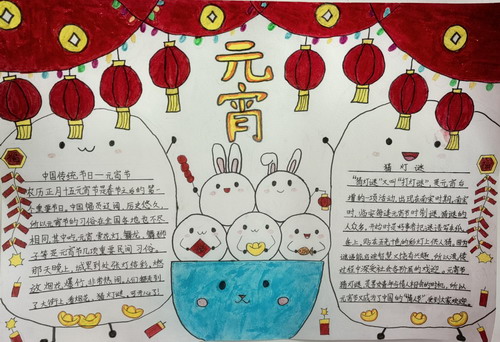 元宵
中国传统节日—元宵节
农历正月十五元宵节是春节之后的第一
个重要节日。中国幅员辽阔，历史悠久，
所以元宵节的习俗在全国各地也不尽
相同，其中吃元宵、赏花灯、舞龙、舞狮
子等是元宵节几项重要民间习俗。
那天晚上，城里到处张灯结彩，燃
放烟花爆竹，非常热闹，人们都走到
了大街上，看烟花，猜灯谜，可开心了！
猜灯谜
“猜灯谜”又叫“打灯谜”，是元宵自
增的一项活动，出现在宋朝。南宋
时，临安每逢元宵节时制谜，猜谜的
人众多。开始时是好事者把谜语写在纸
条上，贴在五光十色的彩灯上供人猜。因为
谜语能启迪智慧又饶有兴趣，所以流传
过程中深受社会各阶层的欢迎。元宵节